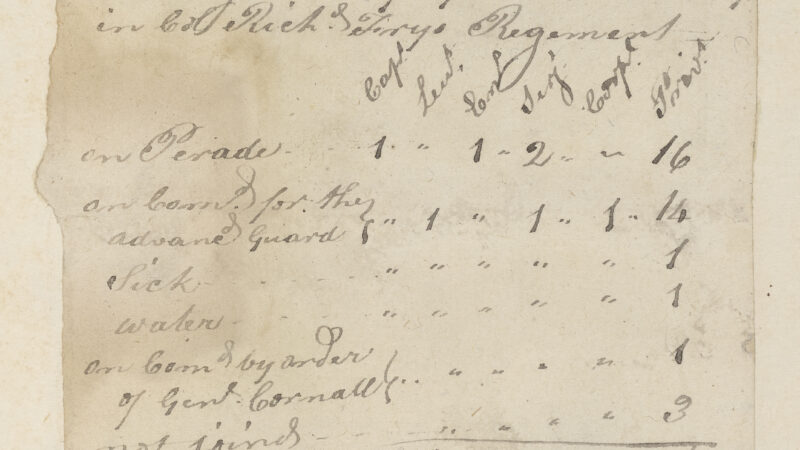 in Col Rich.d Frys Regement
Capt Leut Ens Serj Corpl Privt
on Perade 1 " 1 " 2 " " 16
on Com.d for the
advanc'd Guard " 1 " 1 " 1 " 14
Sick " " " " " 1
water " " " " " 1
on Com.d by order
of Genl Cornall " " " " 1
not joind " " " " 3